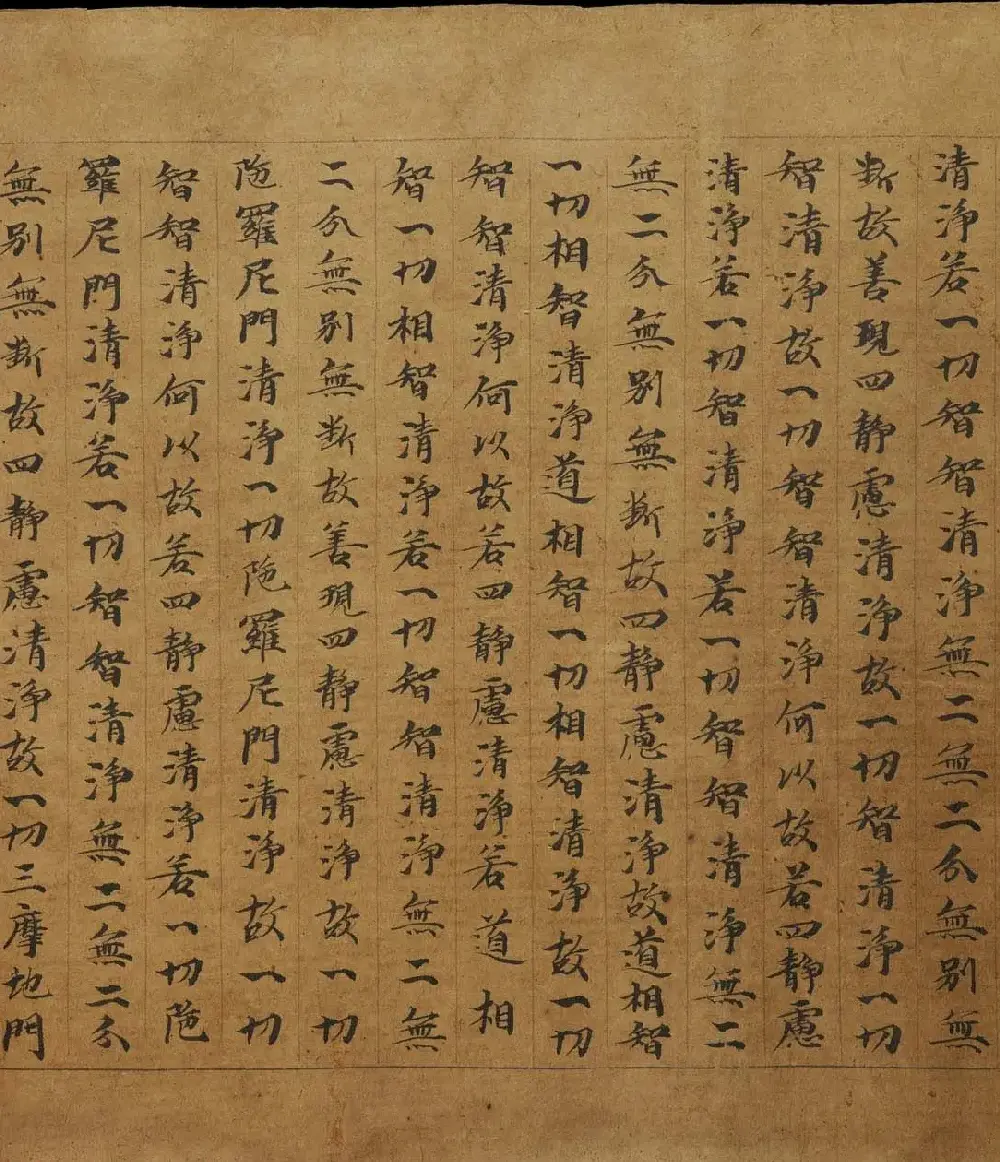 清淨若一切智智清淨無二無二分無別無
斷故善現四靜慮清淨故一切智清淨一切
智清淨故一切智智清淨何以故若四靜慮
清淨若一切智清淨若一切智智清淨無二
無二分無別無斷故四靜慮清淨故道相智
一切相智清淨道相智一切相智清淨故一切
智智清淨何以故若四靜慮清淨若道相
智一切相智清淨若一切智智清淨無二無
二分無別無斷故善現四靜慮清淨故一切
陁羅尼門清淨一切陁羅尼門清淨故一切
智智清淨何以故若四靜慮清淨若一切陁
羅尼門清淨若一切智智清淨無二無二分
無別無斷故四靜慮清淨故一切三摩地門